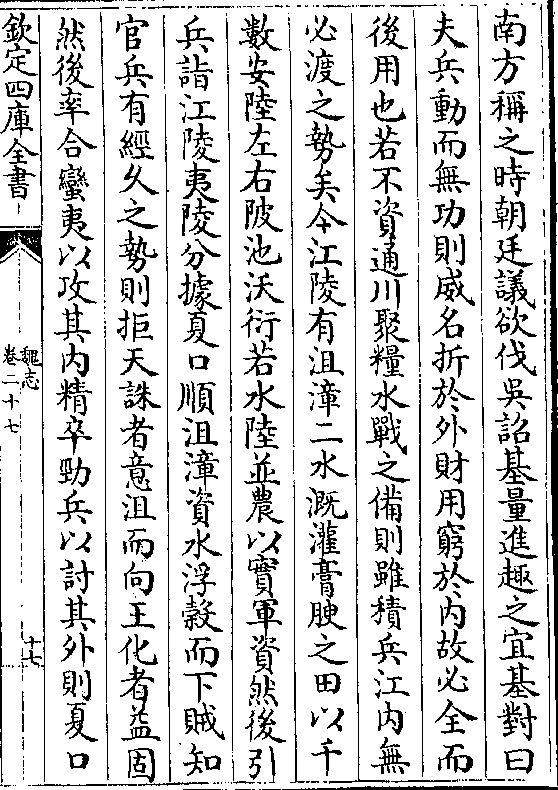 南方稱之時朝廷議欲伐吳詔基量進趣之宜基對曰
夫兵動而無功則威名折於外財用窮於內故必全而
後用也若不資通川聚糧水戰之備則雖積兵江內無
必渡之勢矣今江陵有沮漳二水溉灌膏腴之田以千
數安陸左右陂池沃衍若水陸並農以實軍資然後引
兵詣江陵夷陵分據夏口順沮漳資水浮穀而下賊知
官兵有經久之勢則拒天誅者意沮而向王化者益固
然後率合蠻夷以攻其內精卒勁兵以討其外則夏口
欽定四庫全書
魏志
卷二十七
十七